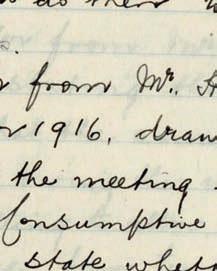 as do them
from Mr. H
1916, draw
the meeting
Consumptive
state whet